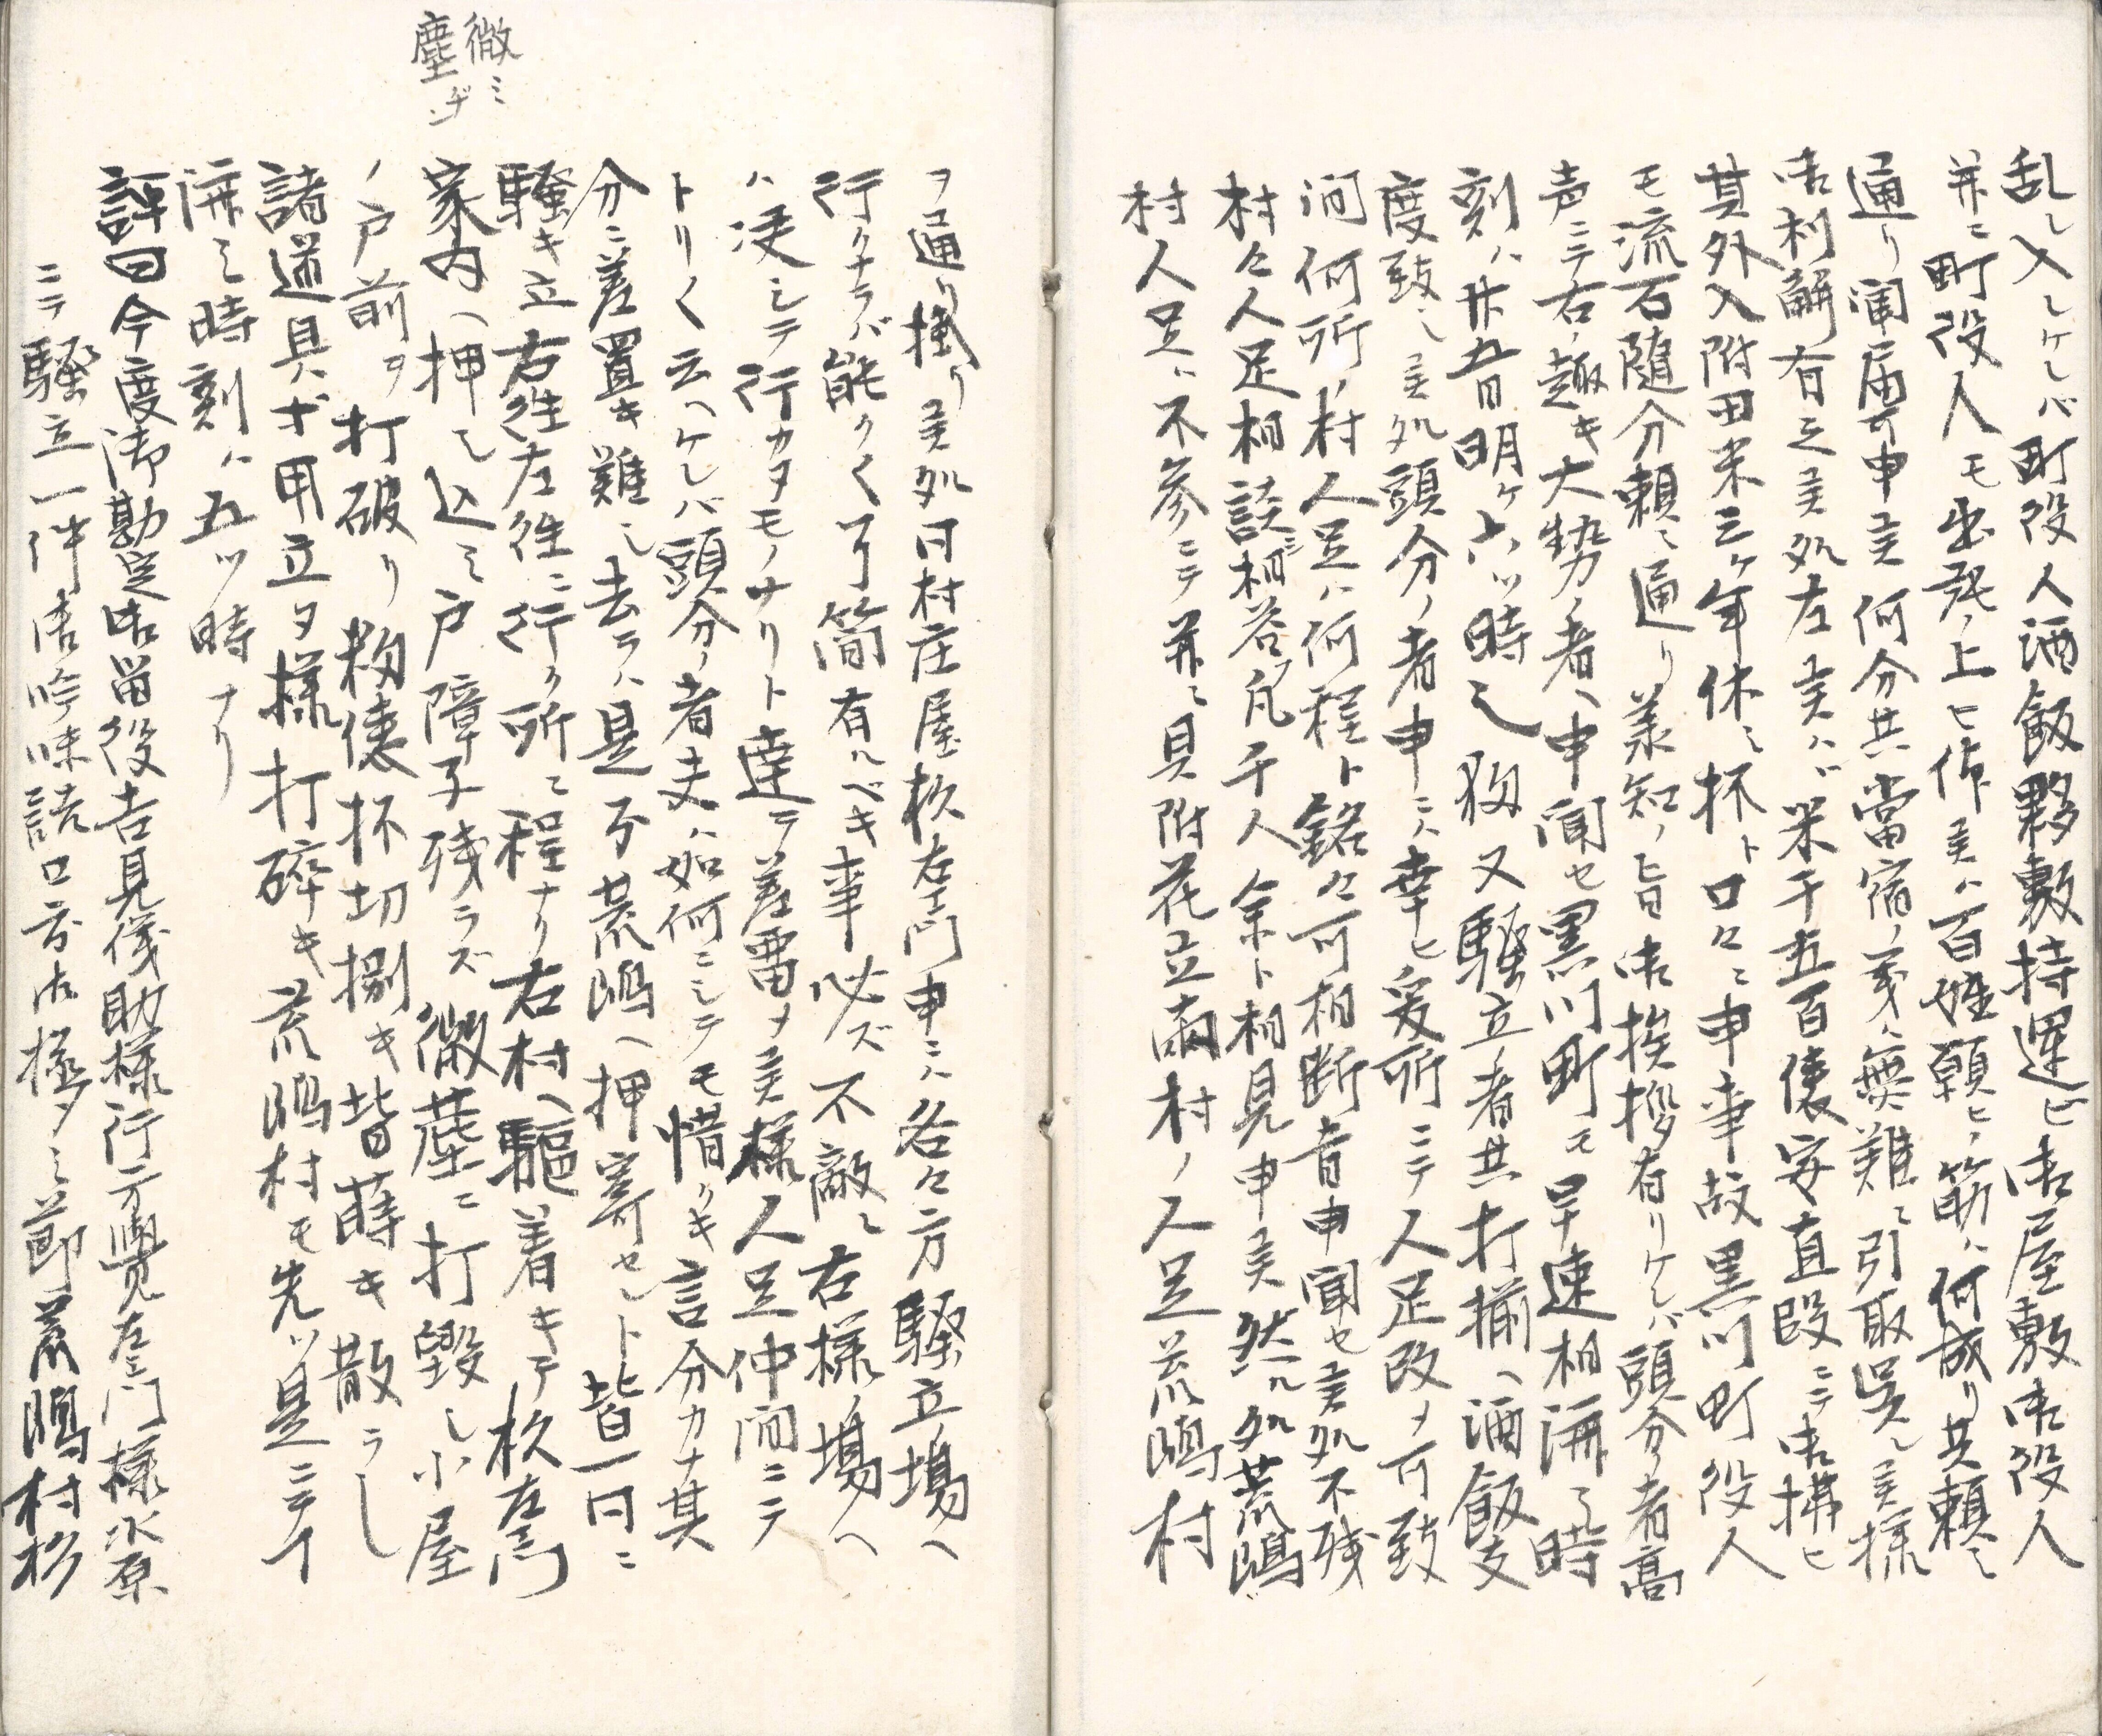 乱レ入レケレバ町役人酒飯夥敷持運ビ御屋敷御役人
并ニ町役人モ出張ノ上ヒ作美ハ百姓願ヒノ筋ハ何成リ共頼ミ
通リ聞届可申美何分共當宿ノ義ハ無難ニ引取呉レ美様
御利解有之美処左美ハバ米千五百俵安直段ニテ御拂ヒ
其外入附田米三ケ年休ミ杯ト口々ニ申事故黒川町役人
モ流石随分頼ミ通リ美知ノ旨御挨拶有リケレバ頭分ノ者高
声ニテ右ノ趣キ大勢ノ者ヘ申聞セ黒川町モ早速相済ミ時
刻ハ廾五日明ケ六ツ時之扨又騒立ノ者共打揃ヘ酒飯支
度致シ美処頭分ノ者申ニハ幸ヒ爰所ニテ人足改メ可致
間何所ノ村人足ハ何程ト銘々可相断旨申聞セ美処不残
村々人足相談ジ相答フ凡千人余ト相見申美然ル処荒嶋
村人足ハ不参ニテ并ニ貝附花立両村ノ人足荒嶋村
ヲ通リ掛リ美処同村庄屋杦左衛門申ニハ各々方騒立場ヘ
行クナラバ能クく了簡有ルベキ事必ズ不敵ニ右様ノ場ヘ
ハ決シテ行カヌモノナリト達テ差畱メ美様人足仲間ニテ
トリく云ヘケレバ頭分ノ者夫ハ如何ニシテモ惜クキ言分カナ其
分ニ差置キ難シ去ラハ是ヨリ荒嶋ヘ押寄セント皆一同ニ
騒キ立右往左往ニ行ク所ニ程ナク右村ヘ驅着キテ杦左衛門
家内ヘ押シ込ミ戸障子残ラズ微塵ニ打毀シ小屋
ノ戸前ヲ打破リ籾俵杯切捌キ皆蒔キ散ラし
諸道具ハ不用立タ様打碎キ荒嶋村モ先ツ是ニテイ
済ミ時刻ハ五ツ時ナリ
微ミ
塵ヂン
評曰今度御勘定御畄役吉見儀助様行方覺左衛門様水原
ニテ騒立一件御吟味詰口書御極メミ節荒嶋村杉